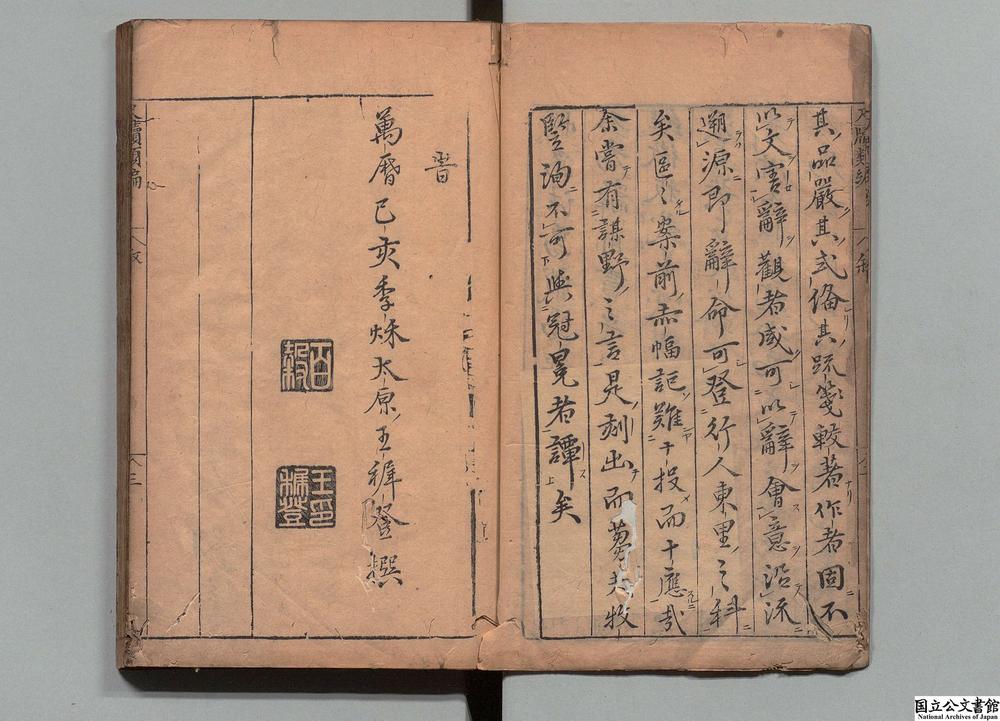 其品嚴其式偹其疏箋較著作者固不
以文害辭觀者咸可以辭會意沿流
遡源即辭命可登行人東里之科
矣區〻案前赤幅詎難十投而十應哉
余嘗有謀野之言是刻出而蒭蕘牧
豎詢不可與冠冕者譚矣
萬曆己亥季秌太原王穉登撰
百穀
王穉登印
國立公文書館
National Archives of Japan